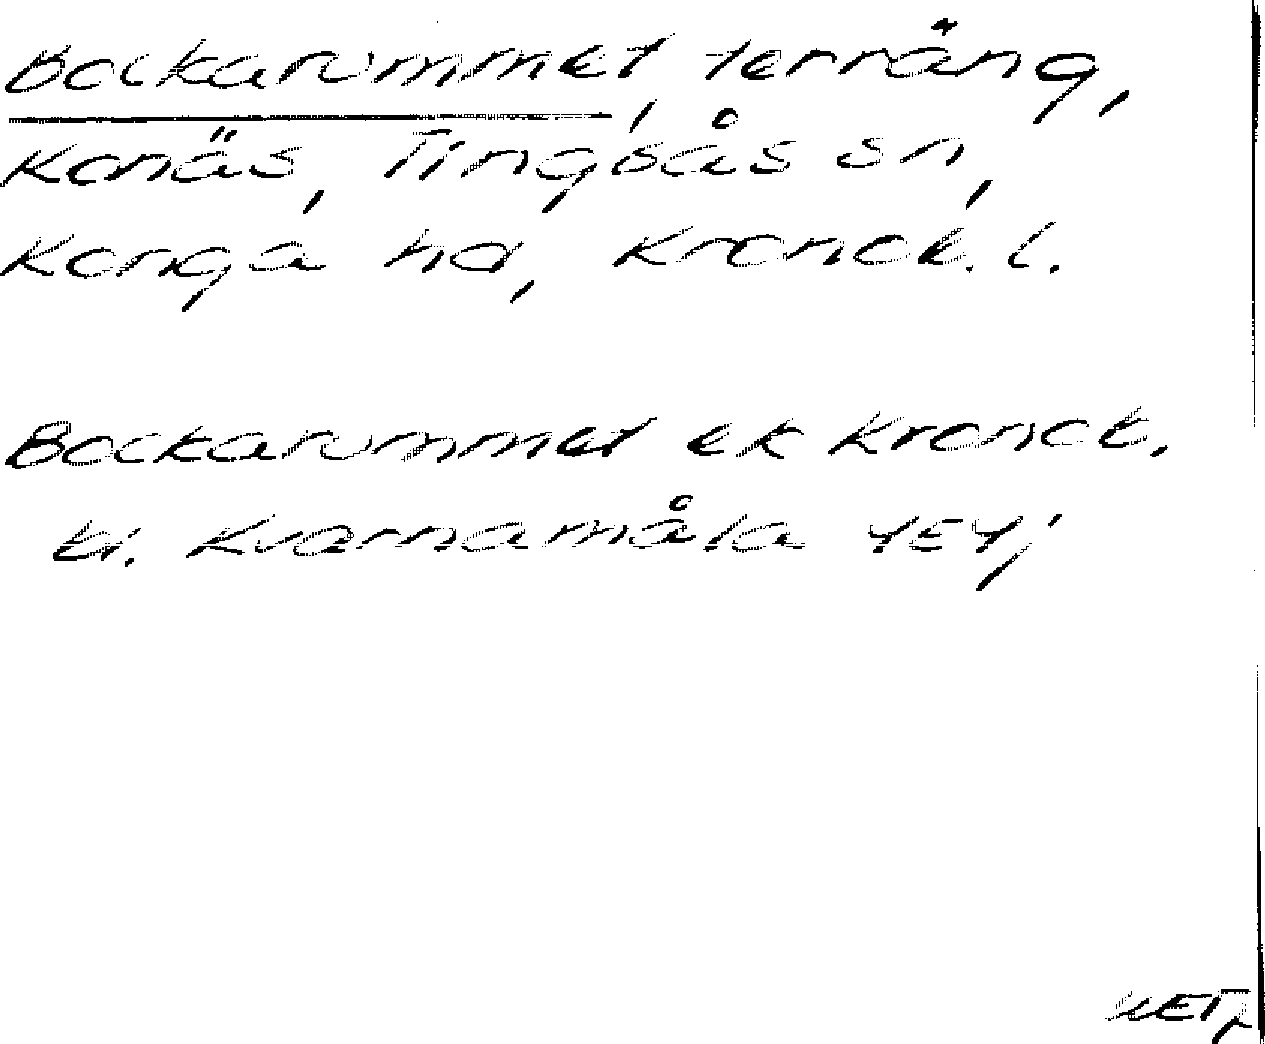 Bockarummet, terräng,
Konäs, Tingsås sn,
Konga hd, Kronob. l.
Bockarummet ek Kronob.
bl. Kvarnamåla